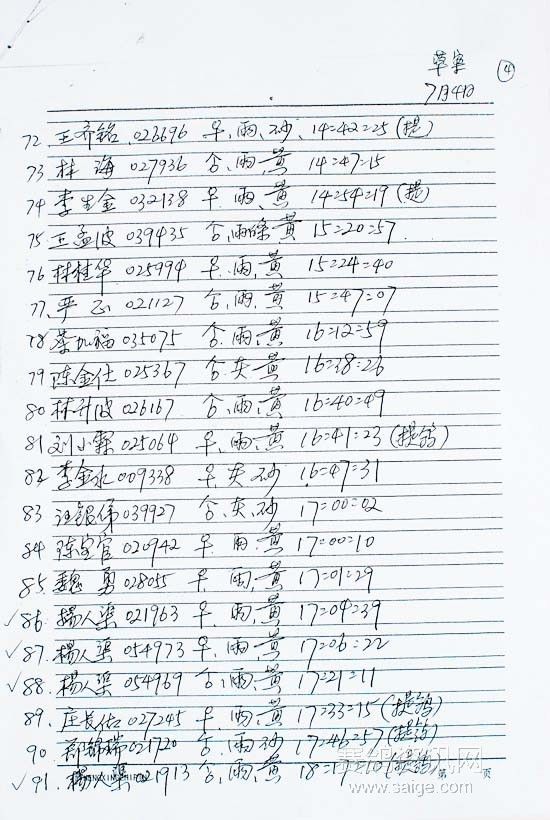 ④
7月4日
72 王齐铭 026696 早、雨、砂、14=42=25(提)
73 林海 027936 合、雨、黄 14=47=15
74 李生金 032138 早、雨、黄 14=54=19(提)
75 王孟波 039435 合、雨條、黄 15=20=57
76 林桂华 025994 早、雨、黄 15=24=40
77 严正 021127 合、雨、黄 15=47=07
78 蔡加福 035075 合、雨、黄 16=12=59
79 陈金仕 025367 合、灰、黄 16=18=26
80 林升波 026167 合、雨、黄 16=40=49
81 刘小霖 025064 早、雨、黄 16=41=23(提鸽)
82 李金水 009338 早、灰、砂 16=47=31
83 汪银伟 039927 合、灰、砂 17=00=02
84 陈宝官 020942 早、雨、黄 17=00=10
85 魏勇 028055 早、雨、黄 17=01=29
✓86 楊人渠 021963 早、雨、黄 17=04=39
✓87 楊人渠 054973 早、雨、黄 17=06=22
✓88 楊人渠 054969 合、雨、黄 17=21=11
89 庄长佑 027245 早、雨、黄 17=33=15(提鸽)
90 郑锦瑞 021720 合、雨、砂 17=46=57(提鸽)
✓91 楊人渠 021913 合、雨、黄 18=19=10(提鸽)
第 页
www.saige.com